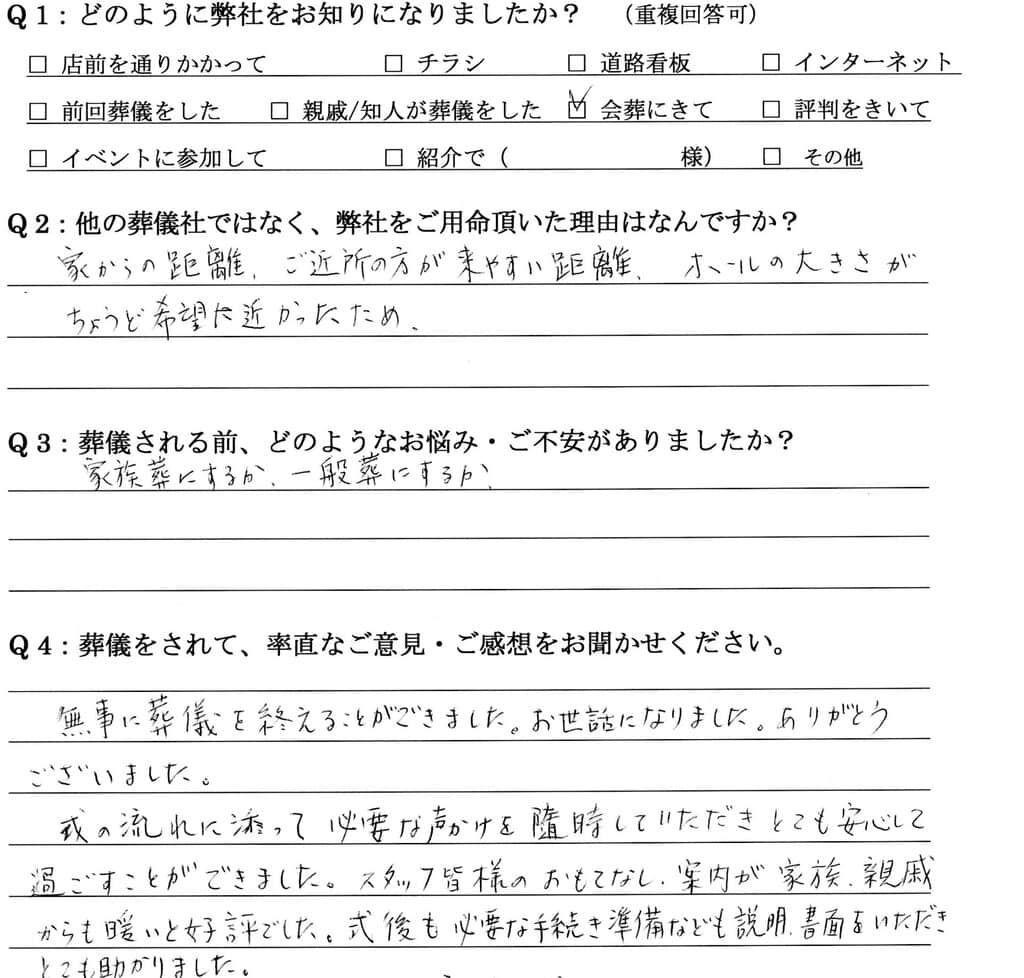 Q1：どのように弊社をお知りになりましたか？　（重複回答可）
□ 店前を通りかかって　□ チラシ　□ 道路看板　□ インターネット
□ 前回葬儀をした　□ 親戚/知人が葬儀をした　☑ 会葬にきて　□ 評判をきいて
□ イベントに参加して　□ 紹介で（　　　　様）　□ その他
Q2：他の葬儀社ではなく、弊社をご用命頂いた理由はなんですか？
家からの距離、ご近所の方が来やすい距離、ホールの大きさが
ちょうど希望に近かったため、
Q3：葬儀される前、どのようなお悩み・ご不安がありましたか？
家族葬にするか、一般葬にするか、
Q4：葬儀をされて、率直なご意見・ご感想をお聞かせください。
無事に葬儀を終えることができました。お世話になりました。ありがとう
ございました。
式の流れに添って必要な声かけを随時していただきとても安心して
過ごすことができました。スタッフ皆様のおもてなし、案内が家族、親戚
からも暖いと好評でした。式後も必要な手続き準備なども説明、書面をいただき
とても助かりました。